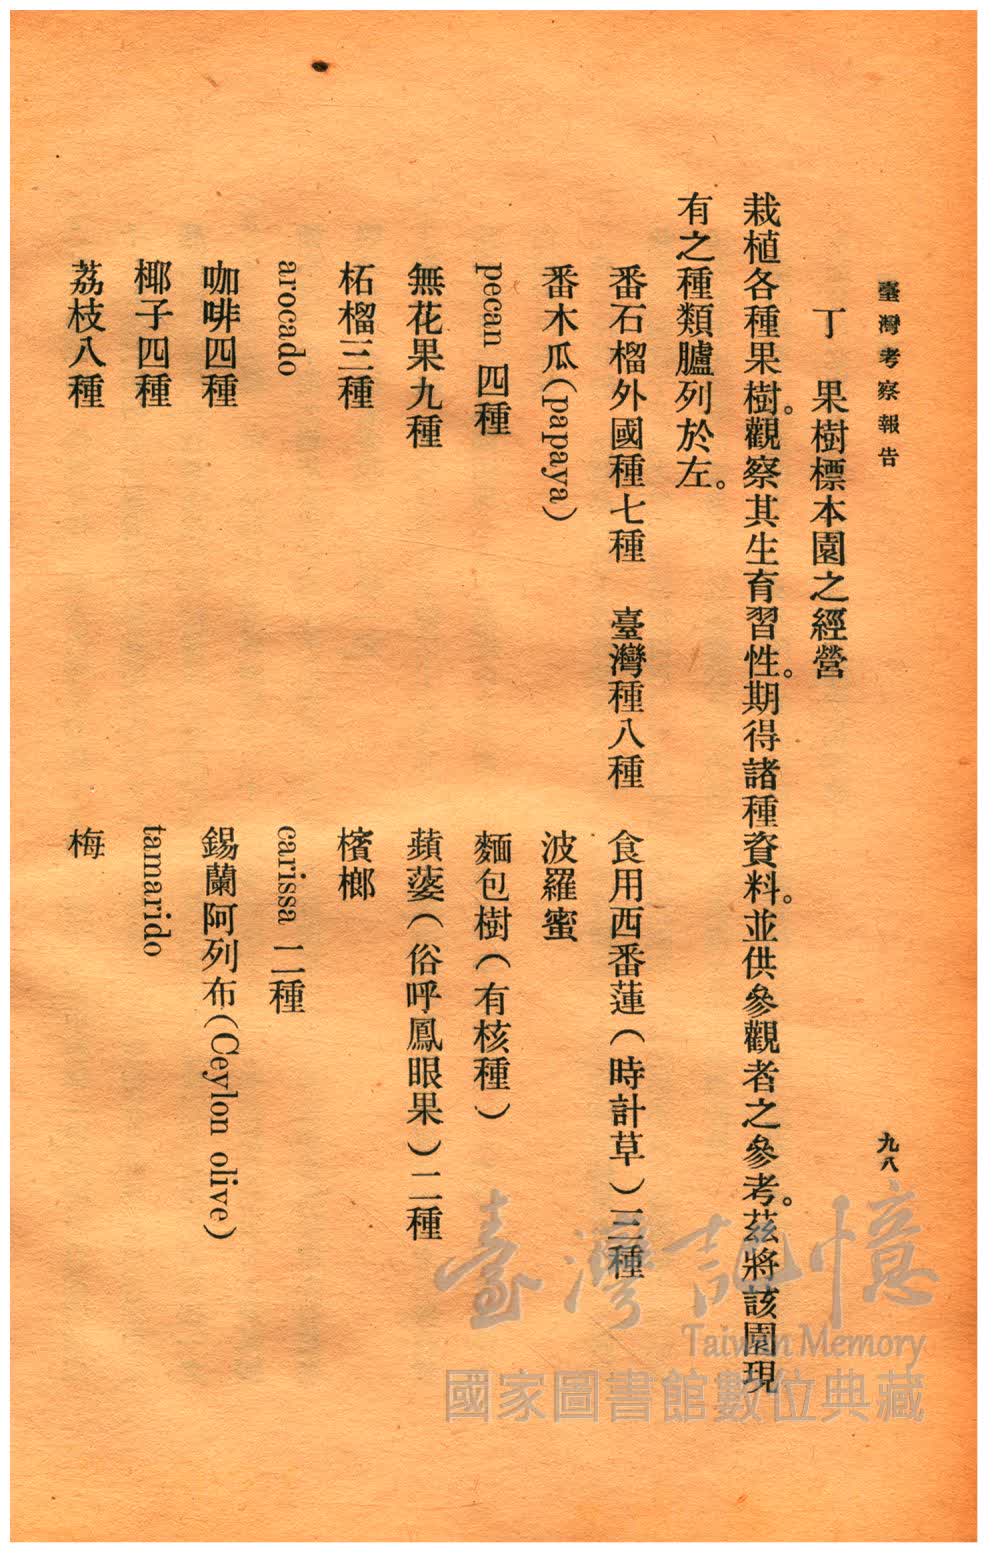 臺灣考察報告
九八
丁　果樹標本園之經營
栽植各種果樹。觀察其生育習性。期得諸種資料。並供參觀者之參考。茲將該園現
有之種類臚列於左。
番石榴外國種七種　臺灣種八種　食用西番蓮（時計草）三種
番木瓜（papaya）　波羅蜜
pecan 四種　麵包樹（有核種）
無花果九種　蘋蔢（俗呼鳳眼果）二種
柘榴三種　檳榔
arocado　carissa 二種
咖啡四種　錫蘭阿列布（Ceylon olive）
椰子四種　tamarido
荔枝八種　梅
臺灣記憶
Taiwan Memory
國家圖書館數位典藏